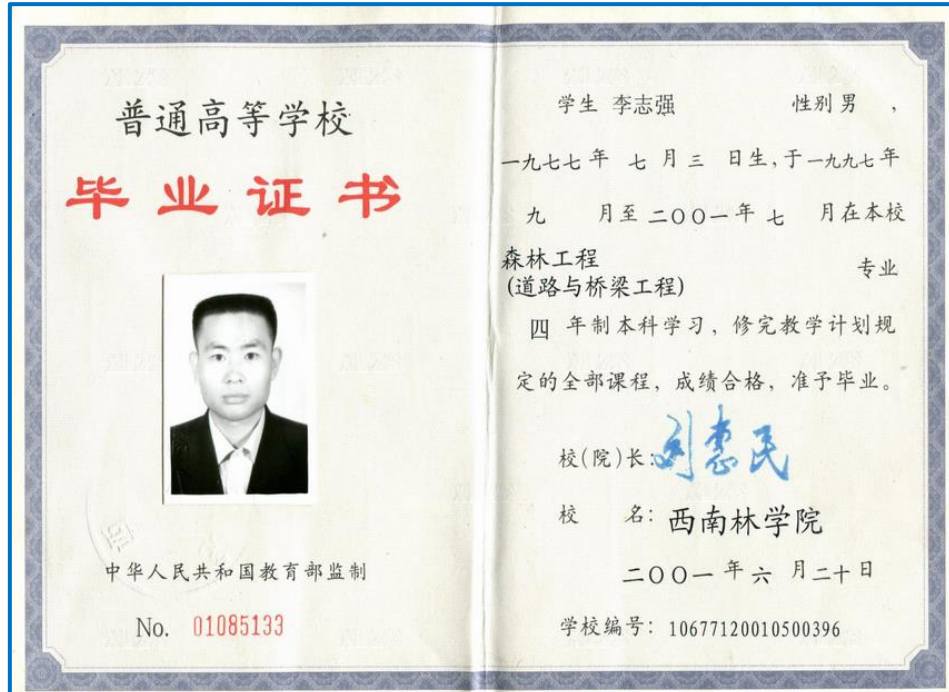 普通高等学校
毕业证书
中华人民共和国教育部监制
No. 01085133
学生 李志强 性别 男 ,
一九七七年 七 月 三 日生,于一九九七年
九 月至二〇〇一年 七 月在本校
森林工程
(道路与桥梁工程) 专业
四 年制本科学习，修完教学计划规
定的全部课程，成绩合格，准予毕业。
校(院)长: 刘惠民
校 名: 西南林学院
二〇〇一年六月二十日
学校编号: 10677120010500396